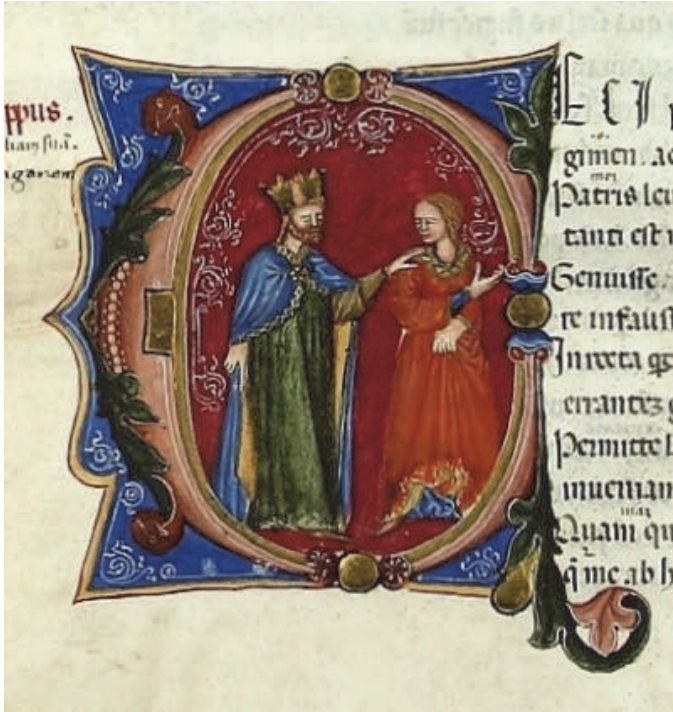 ppus.
ECI
gimen. ac
Patris leu
tanti est
Genuisse
re infaust
In recta
errantez g
Permitte l
inueniam
Quam qu
q̄ me ab h